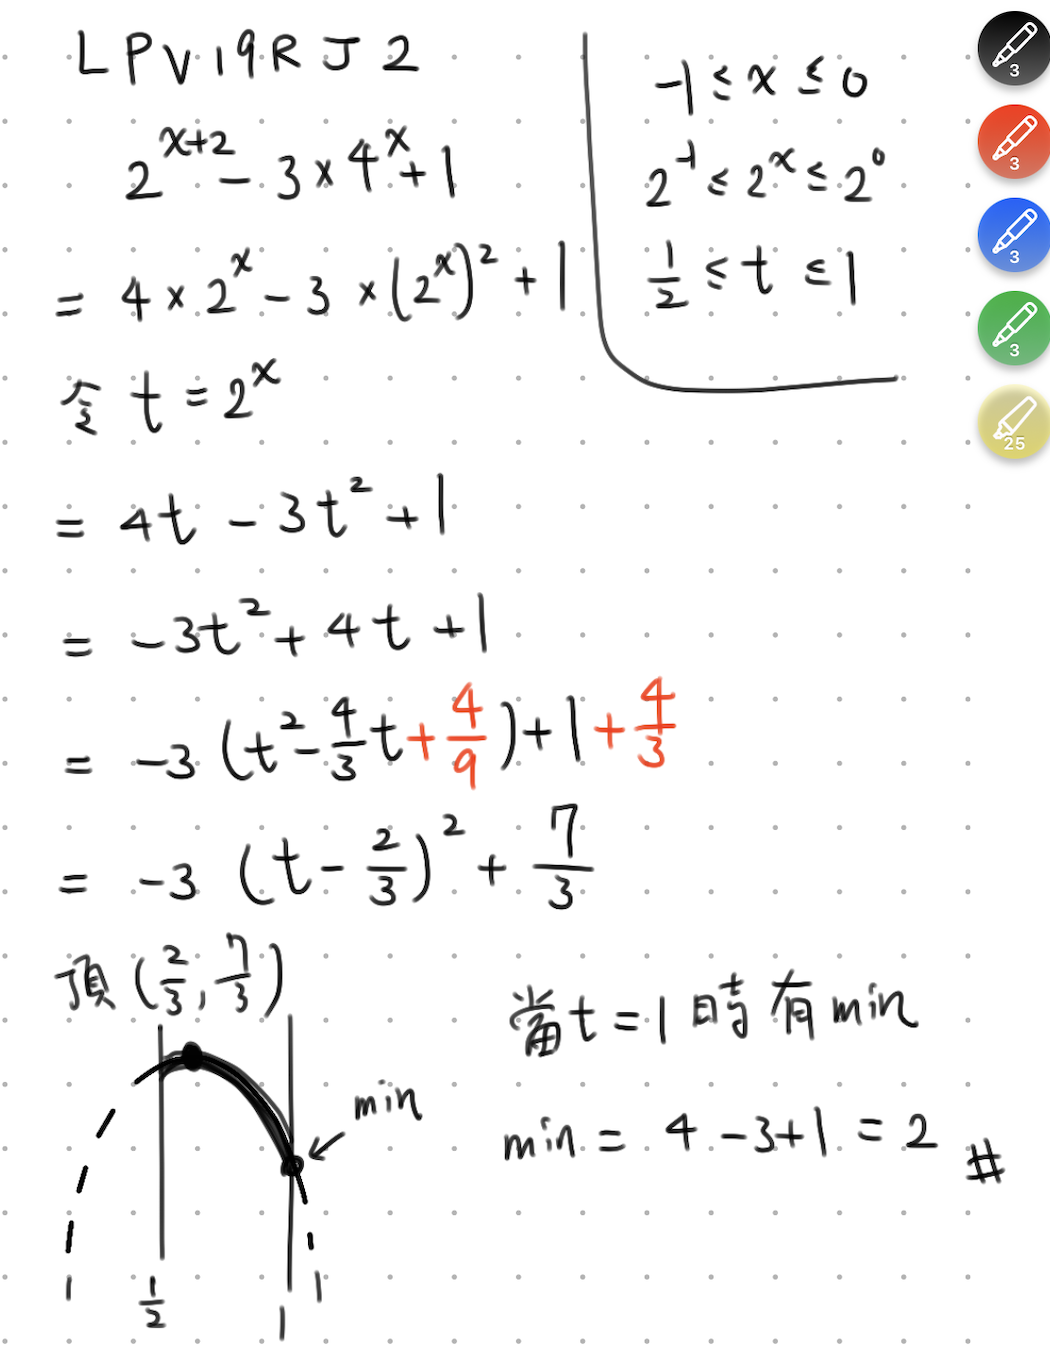 LPV19RJ2
2^{x+2} - 3 × 4^x + 1
= 4 × 2^x - 3 × (2^x)^2 + 1
令 t = 2^x
= 4t - 3t^2 + 1
= -3t^2 + 4t + 1
= -3 (t^2 - \frac{4}{3}t + \frac{4}{9}) + 1 + \frac{4}{3}
= -3 (t - \frac{2}{3})^2 + \frac{7}{3}
頂 (\frac{2}{3}, \frac{7}{3})
min
\frac{1}{2}
1
-1 ≤ x ≤ 0
2^{-1} ≤ 2^x ≤ 2^0
\frac{1}{2} ≤ t ≤ 1
當 t = 1 時有 min
min = 4 - 3 + 1 = 2 #
3
3
3
3
25